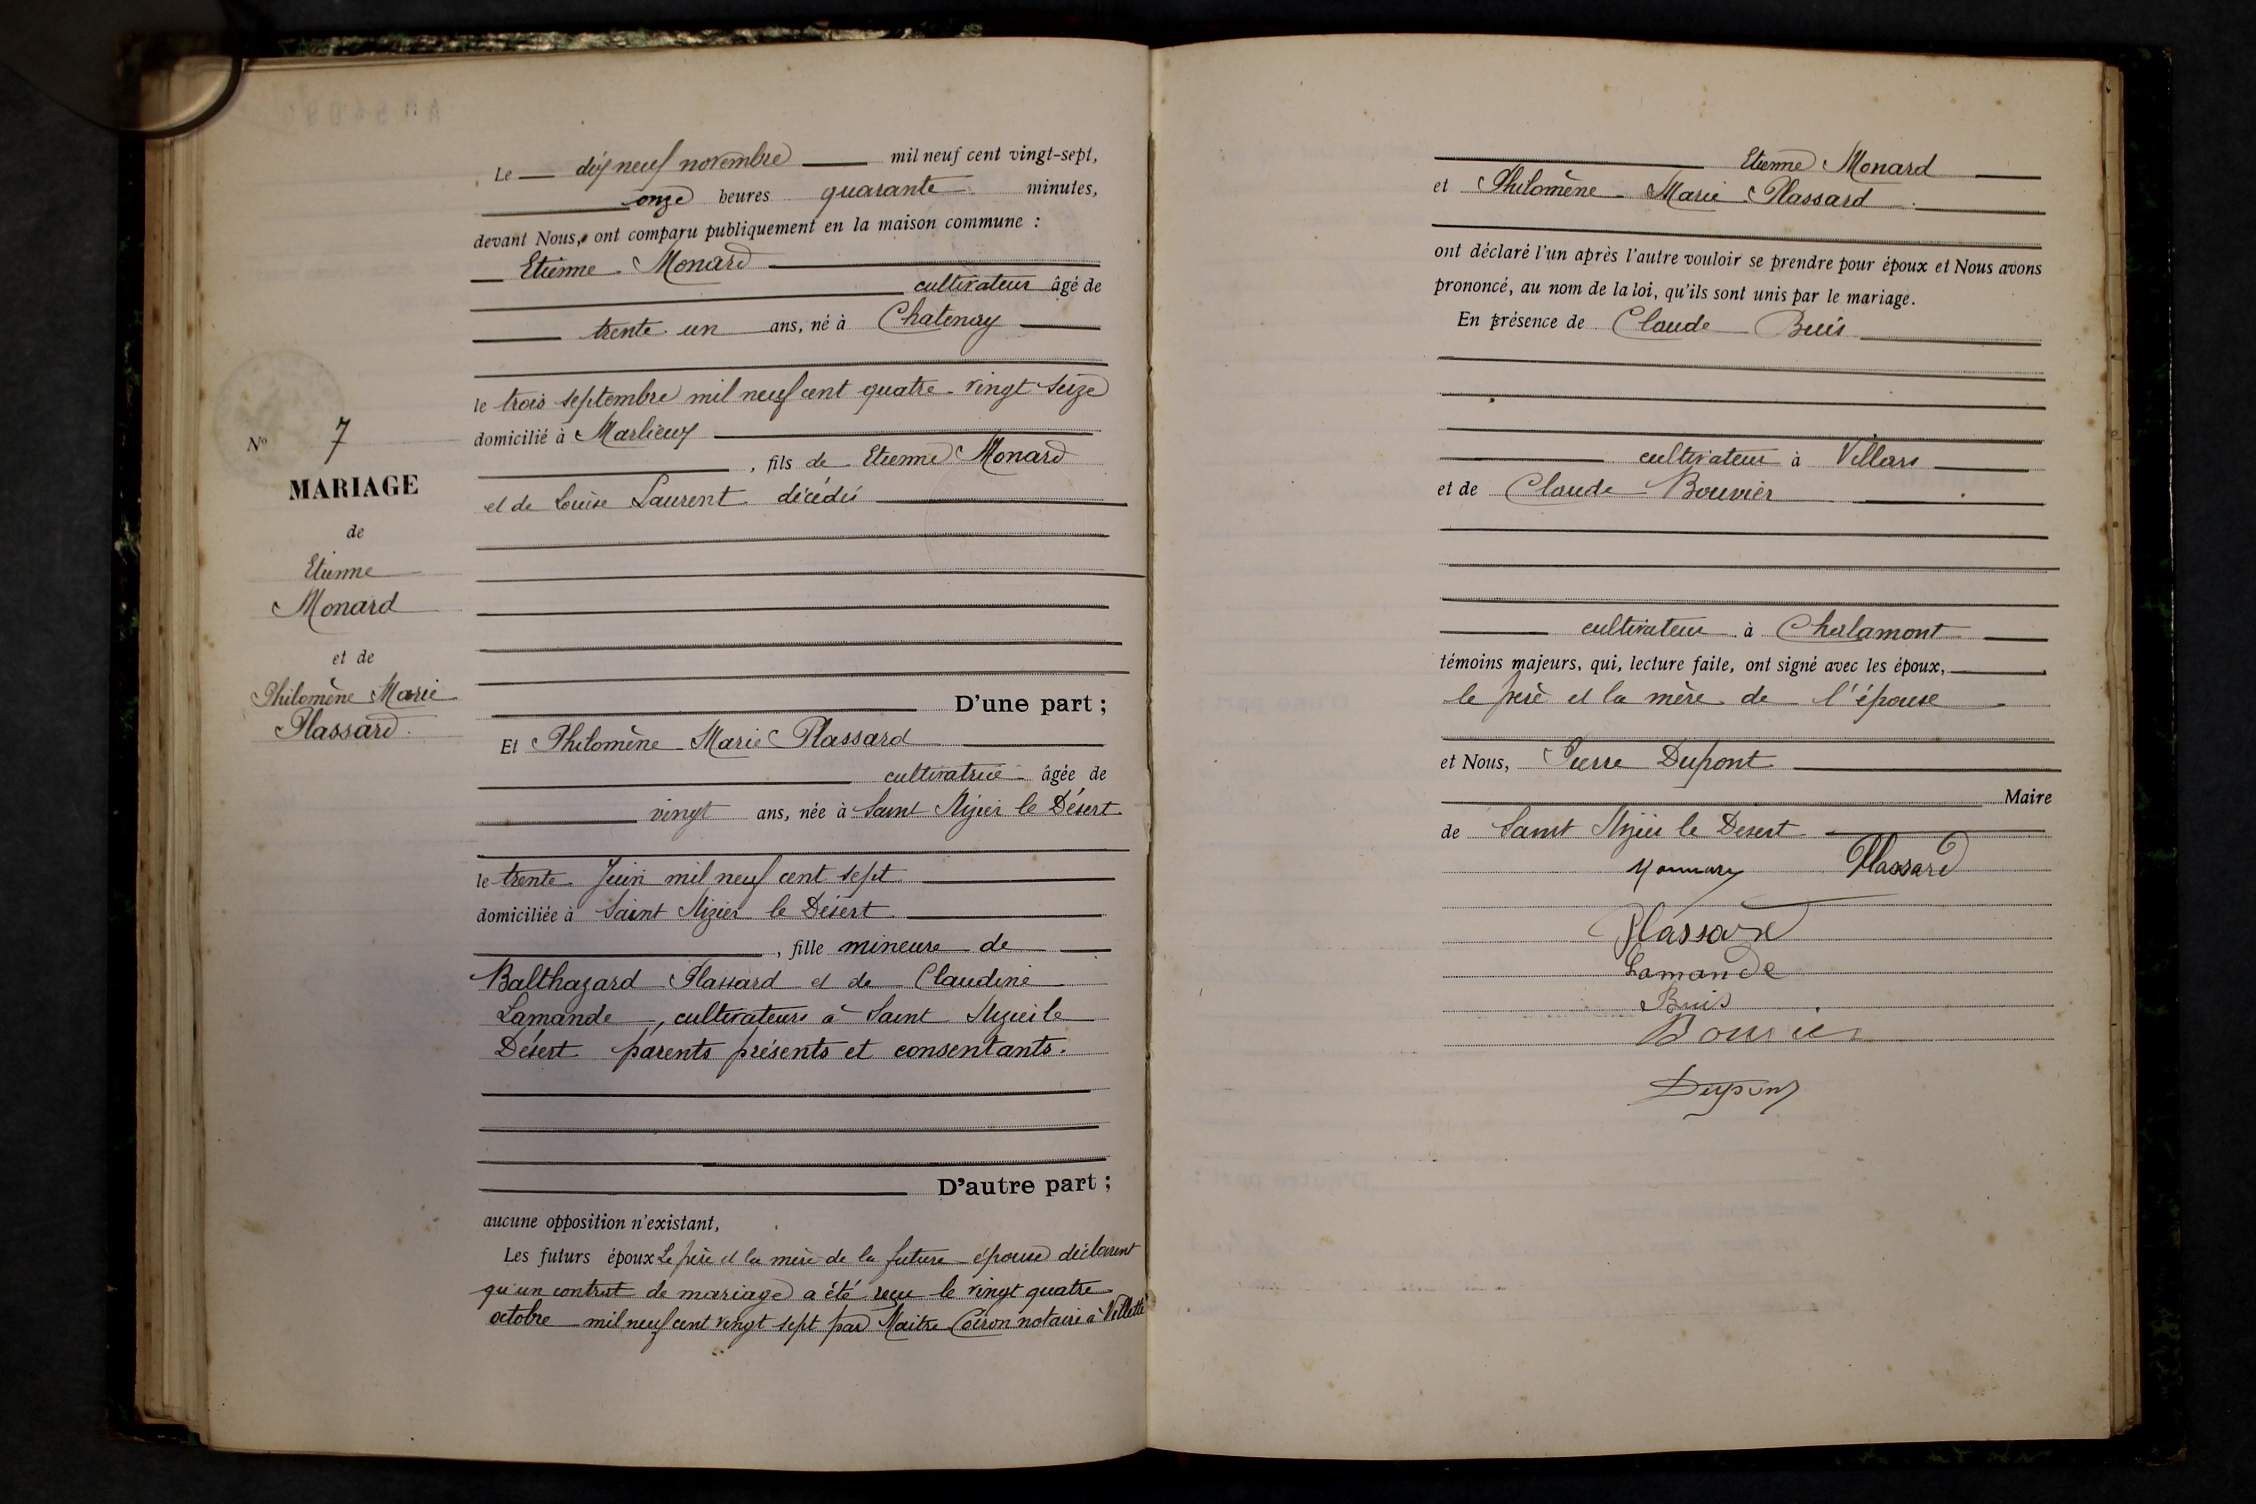 N° 7
MARIAGE
de
Etienne
Monard
et de
Philomène Marie
Plassard.
Le dix neuf novembre mil neuf cent vingt-sept,
onze heures quarante minutes,
devant Nous, ont comparu publiquement en la maison commune :
Etienne Monard
cultivateur âgé de
trente un ans, né à Chatenay
le trois septembre mil neuf cent quatre-vingt seize
domicilié à Marlieux
, fils de Etienne Monard
et de Louise Laurent décédés
D'une part ;
Et Philomène Marie Plassard
cultivatrice âgée de
vingt ans, née à Saint Nizier le Désert
le trente Juin mil neuf cent sept
domiciliée à Saint Nizier le Désert
, fille mineure de
Balthazard Plassard et de Claudine
Lamande, cultivateurs à Saint Nizier le
Désert parents présents et consentants.
D'autre part ;
aucune opposition n'existant,
Les futurs époux Le père et la mère de la future épouse déclarent
qu'un contrat de mariage a été reçu le vingt quatre
octobre mil neuf cent vingt sept par Maitre notaire à Villette
Etienne Monard
et Philomène Marie Plassard.
ont déclaré l'un après l'autre vouloir se prendre pour époux et Nous avons
prononcé, au nom de la loi, qu'ils sont unis par le mariage.
En présence de Claude Buis
cultivateur à Villars
et de Claude Bouvier
cultivateur à Chalamont
témoins majeurs, qui, lecture faite, ont signé avec les époux,
le père et la mère de l'épouse
et Nous, Pierre Dupont
Maire
de Saint Nizier le Desert
Plassard
Plassard
Lamande
Buis
Bouvier
Dupont